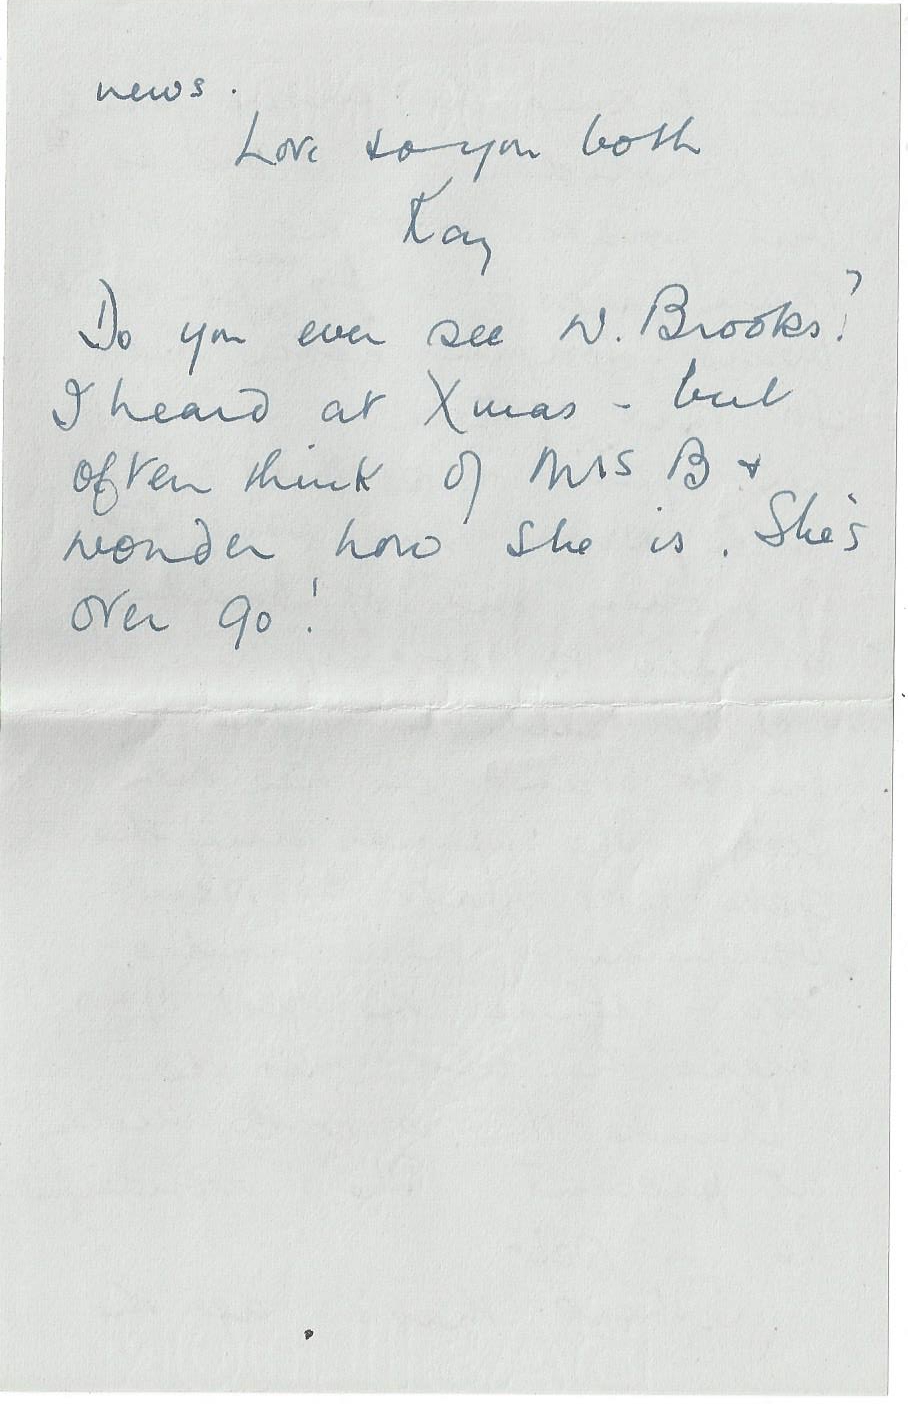 news.
Love to you both
Kay
Do you ever see W. Brooks?
I heard at Xmas - but
often think of Mrs B +
wonder how she is. She's
over 90!